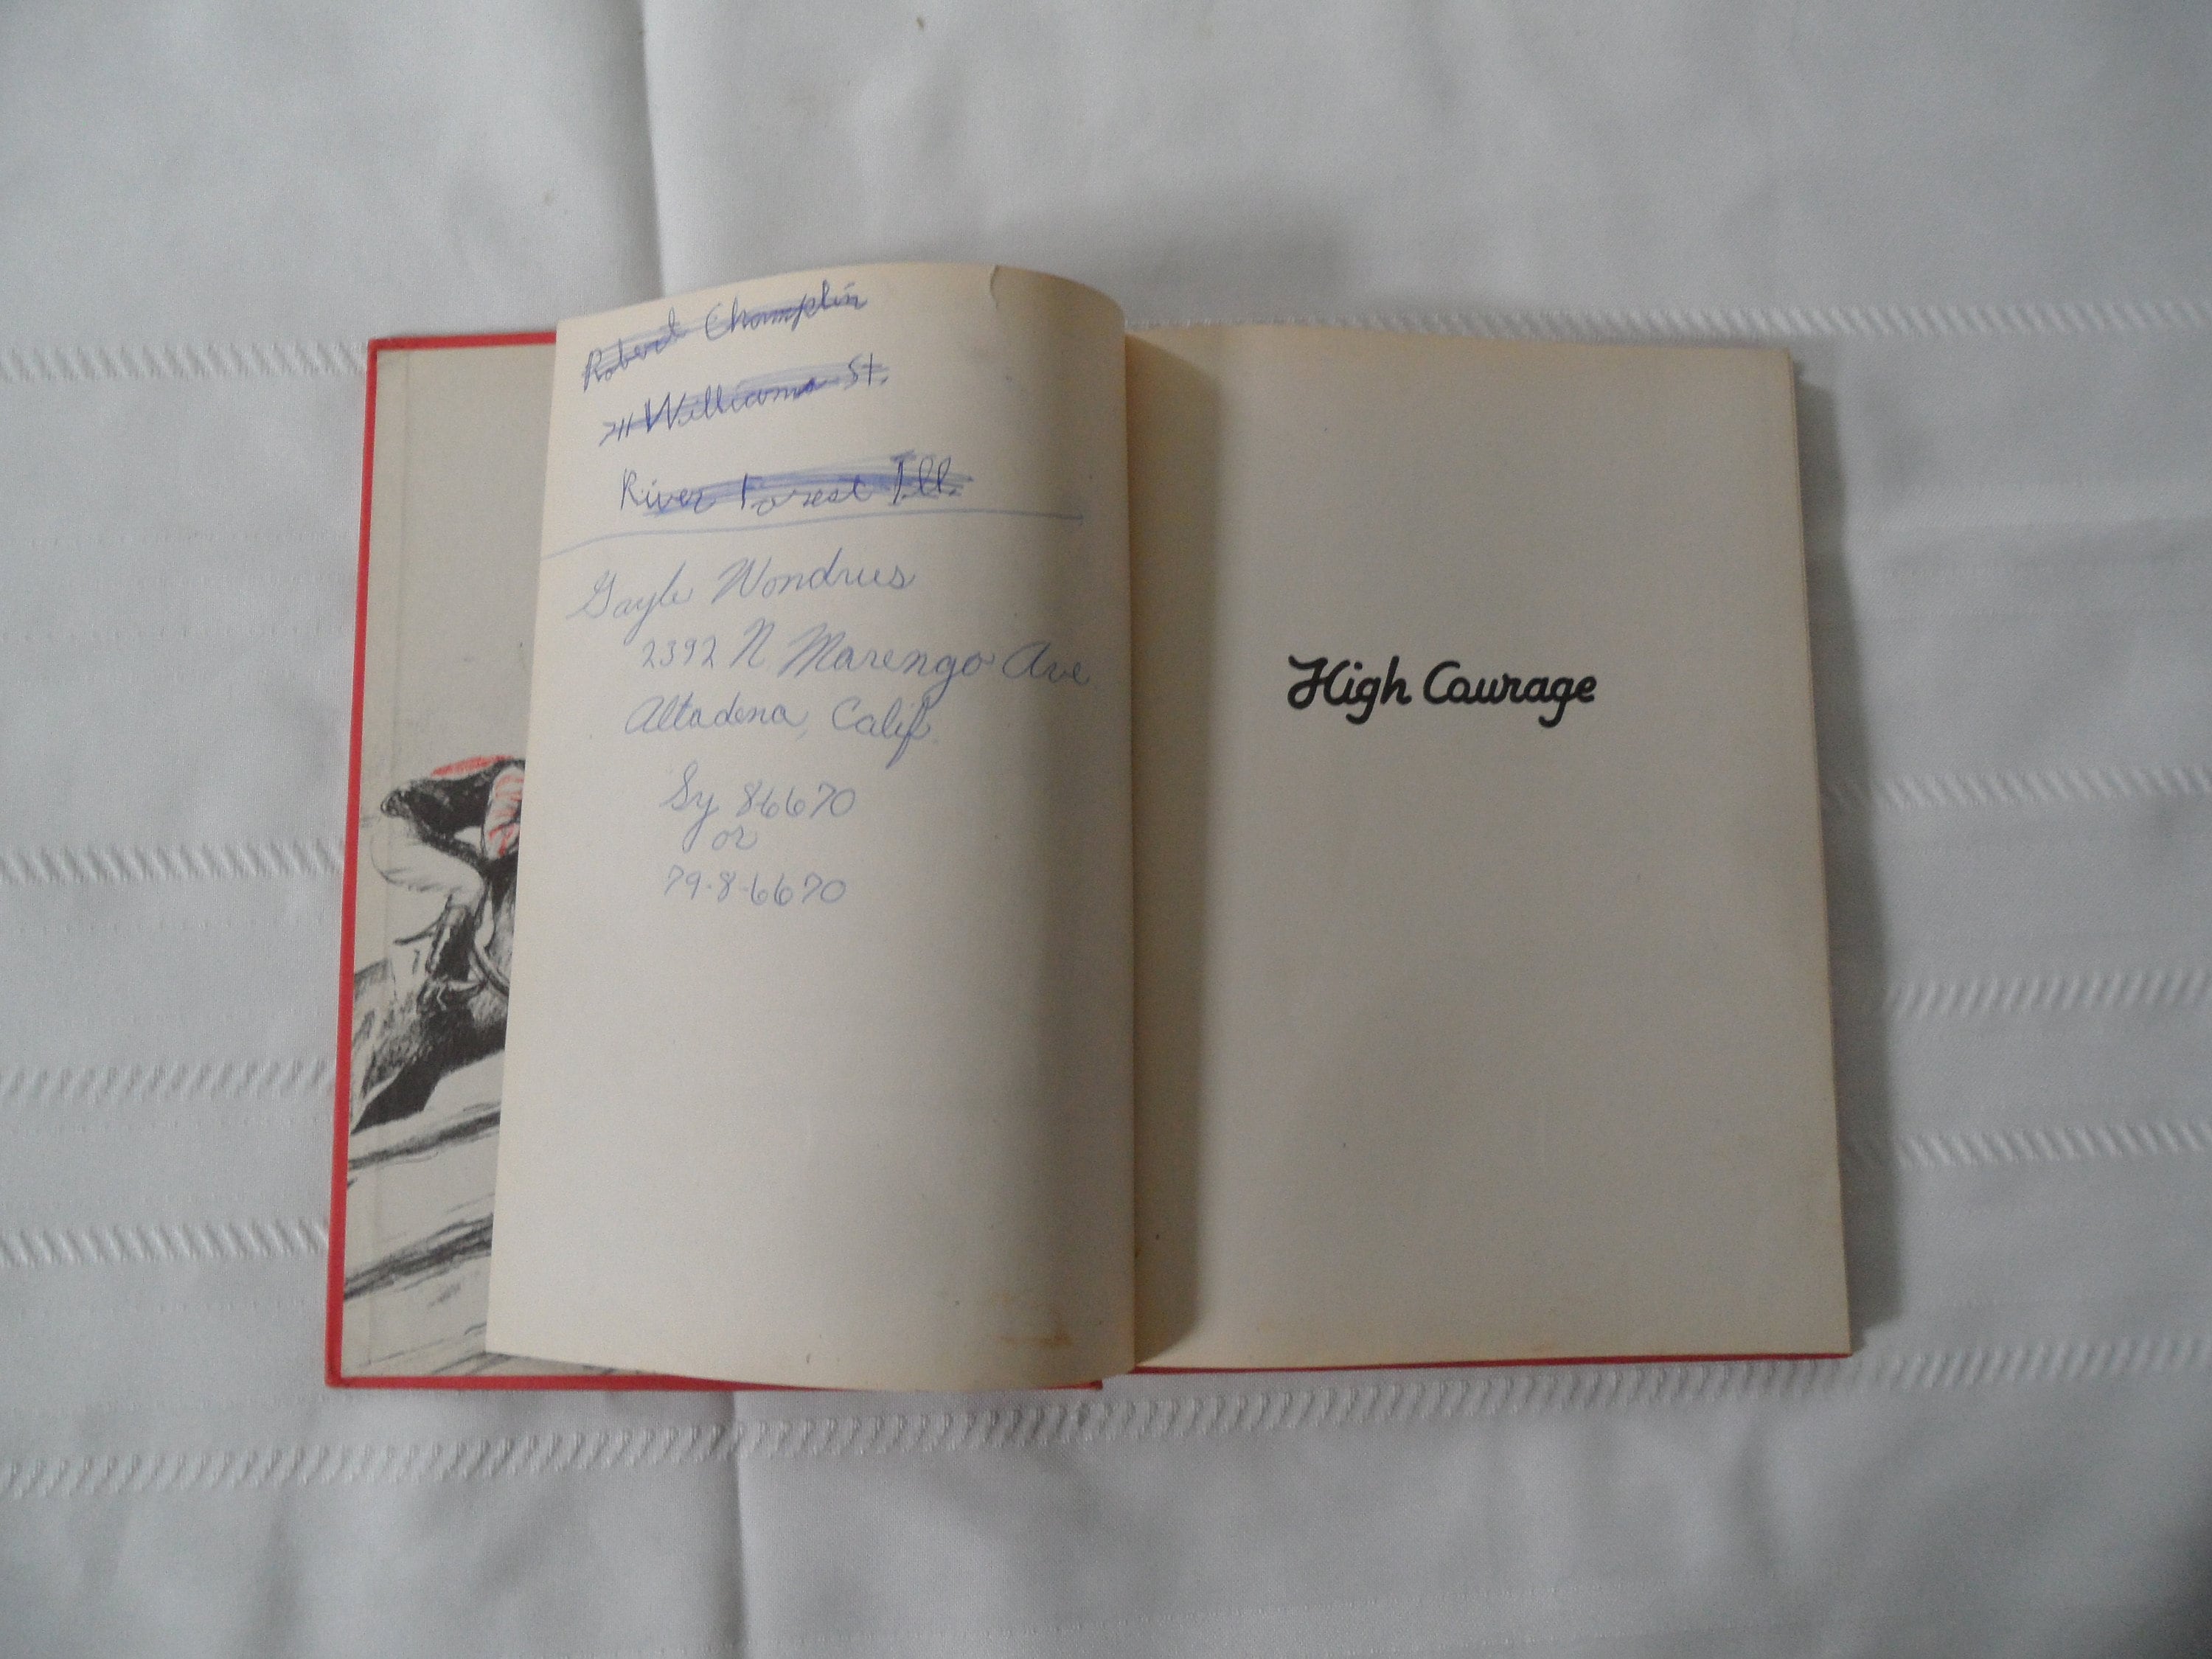 Robert Champlin
711 Williams St.
River Forest Ill.
Gayle Wondrus
2392 N Marengo Ave
Altadena, Calif.
Sy 86670
or
79-8-6670
High Courage